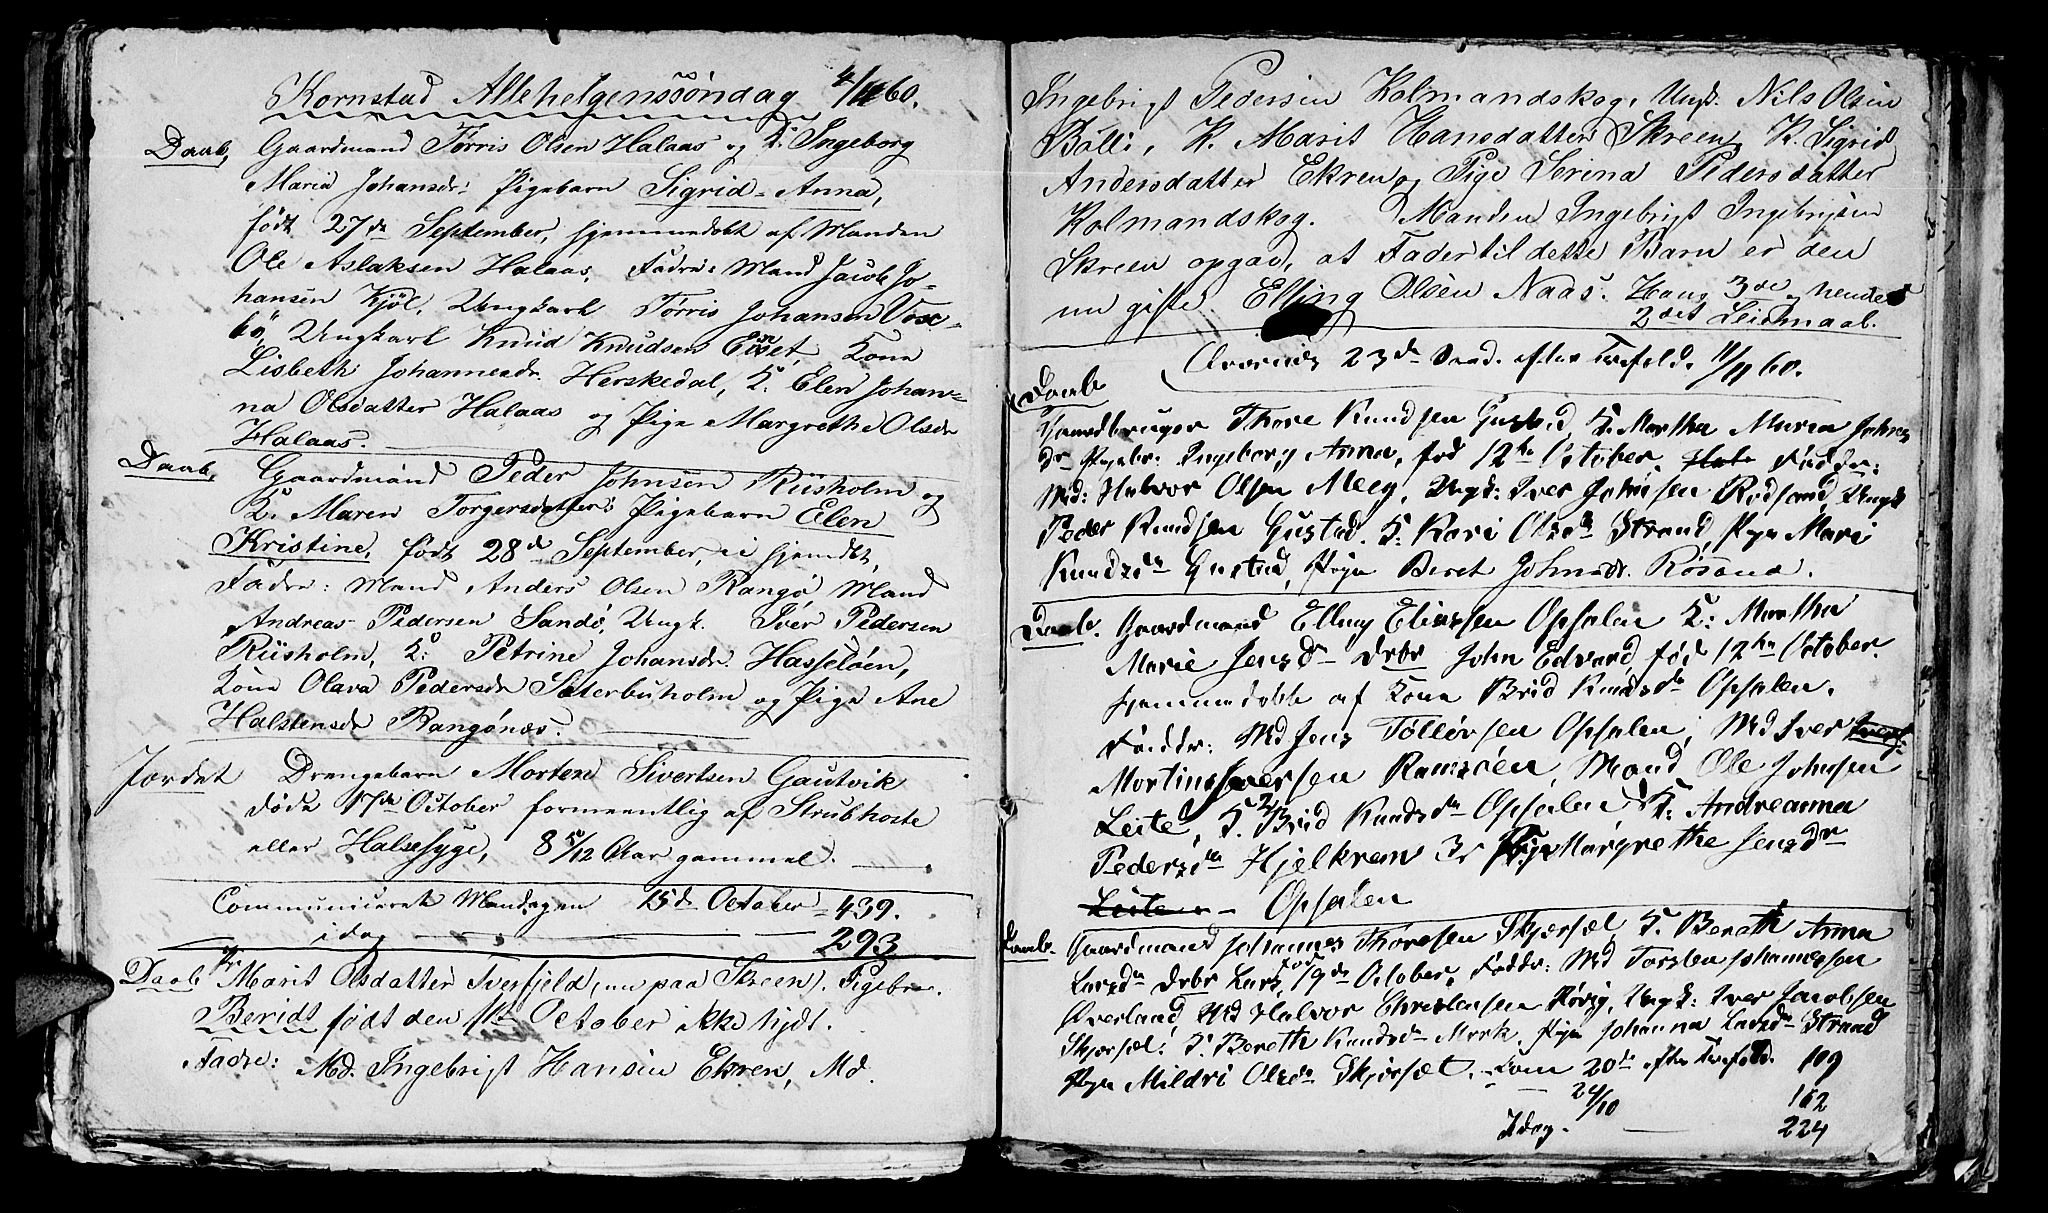 Kornstad Allehelgenssöndag 4/11 60.
Daab, Gaardmand Tørris Olsen Halaas og K. Ingeborg
Maria Johansdr: Pigebarn Sigrid-Anna,
født 27de September, hjemmedøbt af Manden
Ole Aslaksen Halaas, Fadre: Mand Jacob Jo-
hansen Kjöl, Ungkarl Tørris Johansen Vose-
bö, Ungkarl Knud Knudsen Eiset, Kone
Lisbeth Johannesdr. Herskedal, K. Elen Johan-
na Olsdatter Halaas og Pige Margrethe Olsdr
Halaas.
Daab, Gaardmand Peder Johnsen Riisholm og
K. Maren Torgersdatters Pigebarn Elen
Kristine, født 28de September, ei hjemdbt,
Fadre: Mand Anders Olsen Rangö Mand
Andreas Pedersen Sandö, Ungk. Iver Pedersen
Riisholm, K. Petrine Johansdr. Hasselöen,
Kone Olava Pedersdr Sæterbuholm og Pige Ane
Halstensdr Rangönæs.
Jordet Drengebarn Morten Sivertsen Gautvik
døde 17de October formeentlig af Strubhoste
eller Halsesyge, 8 5/12 Aar gammel.
Communiceret Mandagen 15de October 439.
idag 293
Daab Pr Marit Olsdatter Tverfjeld, (nu paa Skreen). Pigebr.
Beridt født den 1ste October ikke hjdt.
Fadre: Md. Ingebrigt Hansen Ekren, Md.
Ingebrigt Pedersen Kolmandskog, Ungk. Nils Olsen
Bolli, K. Marit Hansdatter Skreen, K. Sigrid
Andersdatter Ekren og Pige Serina Pedersdatter
Kolmandskog. Manden Ingebrigt Ingebrigtsen
Skreen opgav, at Fader til dette Barn er den
nu gifte Elling Olsen Naas. Hans 3die, hendes
2det Leiermaal.
Qvernes 23de Sønd. efter Trefold. 11/11 60.
Daab
Gaardbruger Thore Knudsen Gustad K. Martha Maria Johns
dr Pigebr. Ingeborg Anna, fød 12te October. Faddr:
Md: Halvor Olsen Meeg, Ungk: Iver Johnsen Rødsand, Ungk
Peder Knudsen Gustad. K. Kari Olsdr Strand, Pige Mari
Knudsdr Gustad, Pige Beret Johnsdr. Rösand.
Daab. Gaardmand Elling Eliassen Opsalen K: Martha
Marie Jensdr Drbr John Edvard, fød 12te October.
hjemmedøbt af Kone Brid Knudsdr Opsalen.
Faddr: Md Jens Tölløvsen Opsalen, Md Iver
Mortinus Iversen Ramsöen, Mand Ole Johnsen
Leite, K. Brid Knudsdr Opsalen, K. Andreanna
Pedersdr Hjelkrem Pige Margrethe Jensdr
Leite Opsalen
Daab. Gaardmand Johannes Thoresen Skjørsæt K. Bereth Anna
Larsdr Drbr Lars, fød 19de October, Faddr: Md Torsten Johannessen
Øverland, Md Halvor Christensen Rövig, Ungk: Iver Jacobsen
Skjørsæt. K. Bereth Knudsdr Mork. Pige Johanna Larsdr Strand
Pige Mildri Olsdr Skjørsæt. Com 20de efter Trefold. 109
24/10 162
Idag. 224